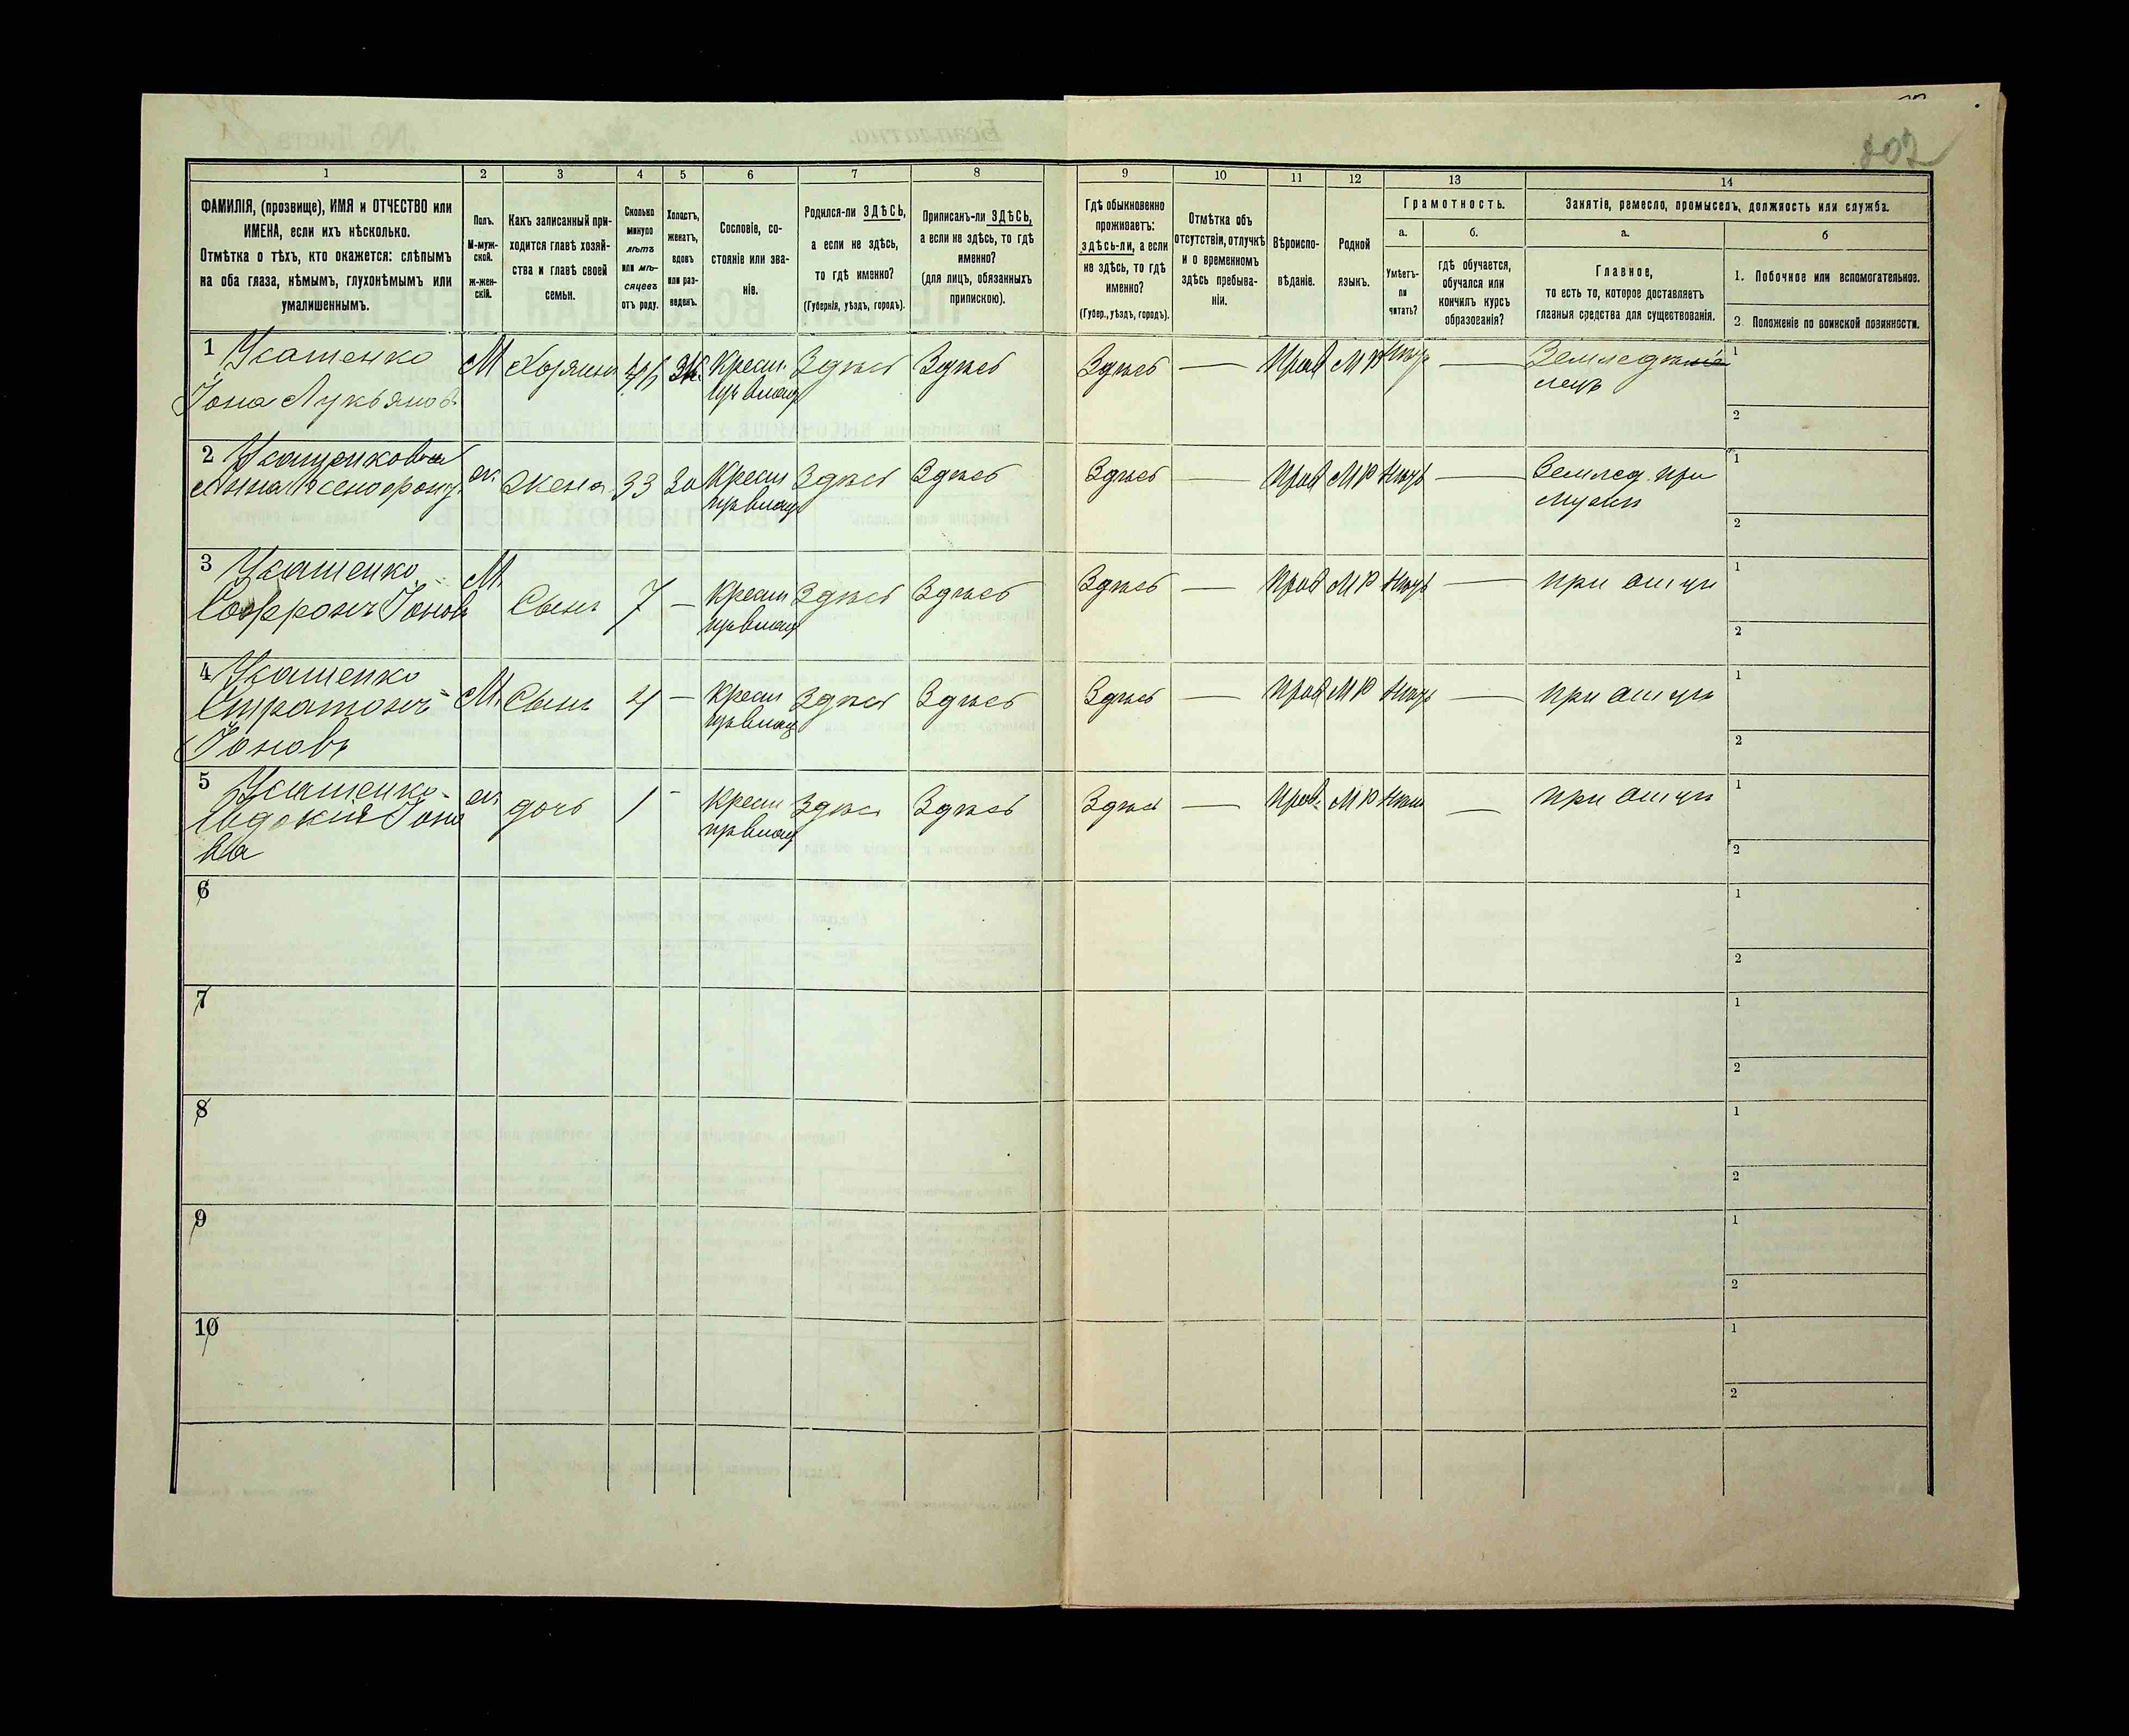 802
1 2 3 4 5 6 7 8 9 10 11 12 13 14
ФАМИЛІЯ, (прозвище), ИМЯ и ОТЧЕСТВО или
ИМЕНА, если ихъ нѣсколько.
Отмѣтка о тѣхъ, кто окажется: слѣпымъ
на оба глаза, нѣмымъ, глухонѣмымъ или
умалишеннымъ.
Полъ.
М-муж-
ской.
ж-жен-
скій.
Какъ записанный при-
ходится главѣ хозяй-
ства и главѣ своей
семьи.
Сколько
минуло
лѣтъ
или мѣ-
сяцевъ
отъ роду.
Холостъ,
женатъ,
вдовъ
или раз-
веденъ.
Сословіе, со-
стояніе или зва-
ніе.
Родился-ли ЗДѢСЬ,
а если не здѣсь,
то гдѣ именно?
(Губернія, уѣздъ, городъ).
Приписанъ-ли ЗДѢСЬ,
а если не здѣсь, то гдѣ
именно?
(для лицъ, обязанныхъ
припискою).
Гдѣ обыкновенно
проживаетъ:
здѣсь-ли, а если
не здѣсь, то гдѣ
именно?
(Губер., уѣздъ, городъ).
Отмѣтка объ
отсутствіи, отлучкѣ
и о временномъ
здѣсь пребыва-
ніи.
Вѣроиспо-
вѣданіе.
Родной
языкъ.
Грамотность.
а.
Умѣетъ-
ли
читать?
б.
гдѣ обучается,
обучался или
кончилъ курсъ
образованія?
Занятіе, ремесло, промыселъ, должность или служба.
а.
Главное,
то есть то, которое доставляетъ
главныя средства для существованія.
б
1. Побочное или вспомогательное.
2 Положеніе по воинской повинности.
1 Укатенко М Хозяинъ Ж. Крест. Здѣсь Здѣсь Здѣсь — Прав М Р — Земледѣ
Іона Лукьяновъ лецъ
1
2
2
Анна ж Жена 33 За Крест Здѣсь Здѣсь Здѣсь — Прав М Р — Землед. при
мужѣ
1
2
3 Укатенко М Сынъ 7 — Крест Здѣсь Здѣсь Здѣсь — Прав М Р — при отцѣ
Софронъ Іоновъ
1
2
4 Укатенко М Сынъ 4 — Крест Здѣсь Здѣсь Здѣсь — Прав М Р — при отцѣ
Стратонъ
Іоновъ
1
2
5 Укатенко ж дочь 1 - Крест Здѣсь Здѣсь Здѣсь — Прав. М Р — при отцѣ
Евдокія Іоно
ва
1
2
6
1
2
7
1
2
8
1
2
9
1
2
10
1
2